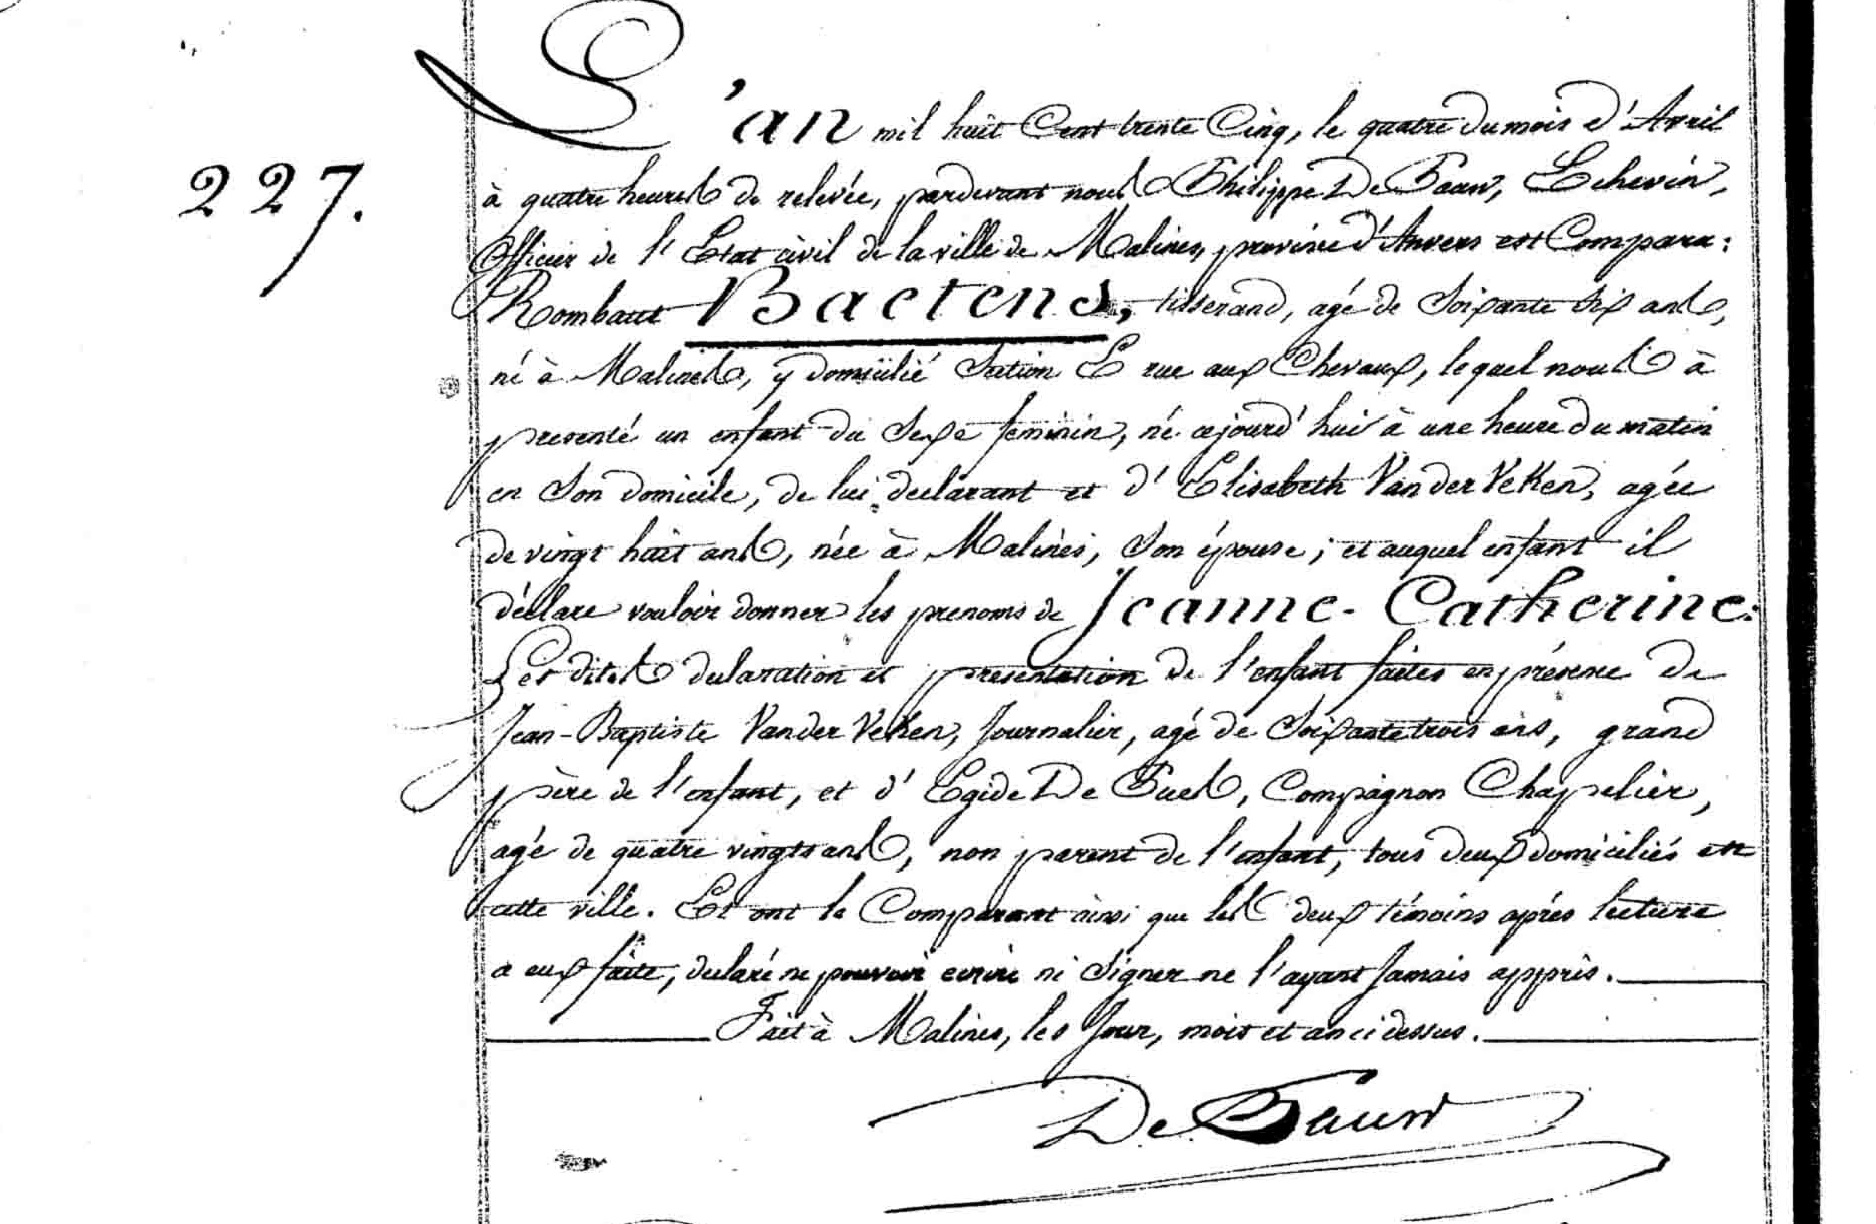 227.
L'an mil huit Cent trente Cinq, le quatre du mois d'Avril
à quatre heures de relevée, pardevant nous Philippe De Pauw, Echevin,
Officier de l'Etat civil de la ville de Malines, province d'Anvers est Comparu:
Rombaut Baetens, tisserand, agé de Soixante Six ans,
né à Malines, y domicilié Section E rue aux Chevaux, lequel nous à
presenté un enfant du Sexe feminin, né cejourd'hui à une heure du matin
en Son domicile, de lui declarant et d'Elisabeth Van der Veken, agée
de vingt huit ans, née à Malines, Son épouse; et auquel enfant il
déclare vouloir donner les prenoms de Jeanne-Catherine.
Les dites declaration et presentation de l'enfant faites en présence de
Jean-Baptiste Van der Veken, Journalier, agé de Soixante trois ans, grand
père de l'enfant, et d'Egide De Buel, Compagnon Chapelier,
agé de quatre vingts ans, non parent de l'enfant, tous deux domiciliés en
cette ville. Et ont le Comparant ainsi que les deux témoins après lecture
a eux faite, declaré ne pouvoir ecrire ni Signer ne l'ayant Jamais appris.
Fait à Malines, les Jour, mois et an ci dessus.
De Pauw